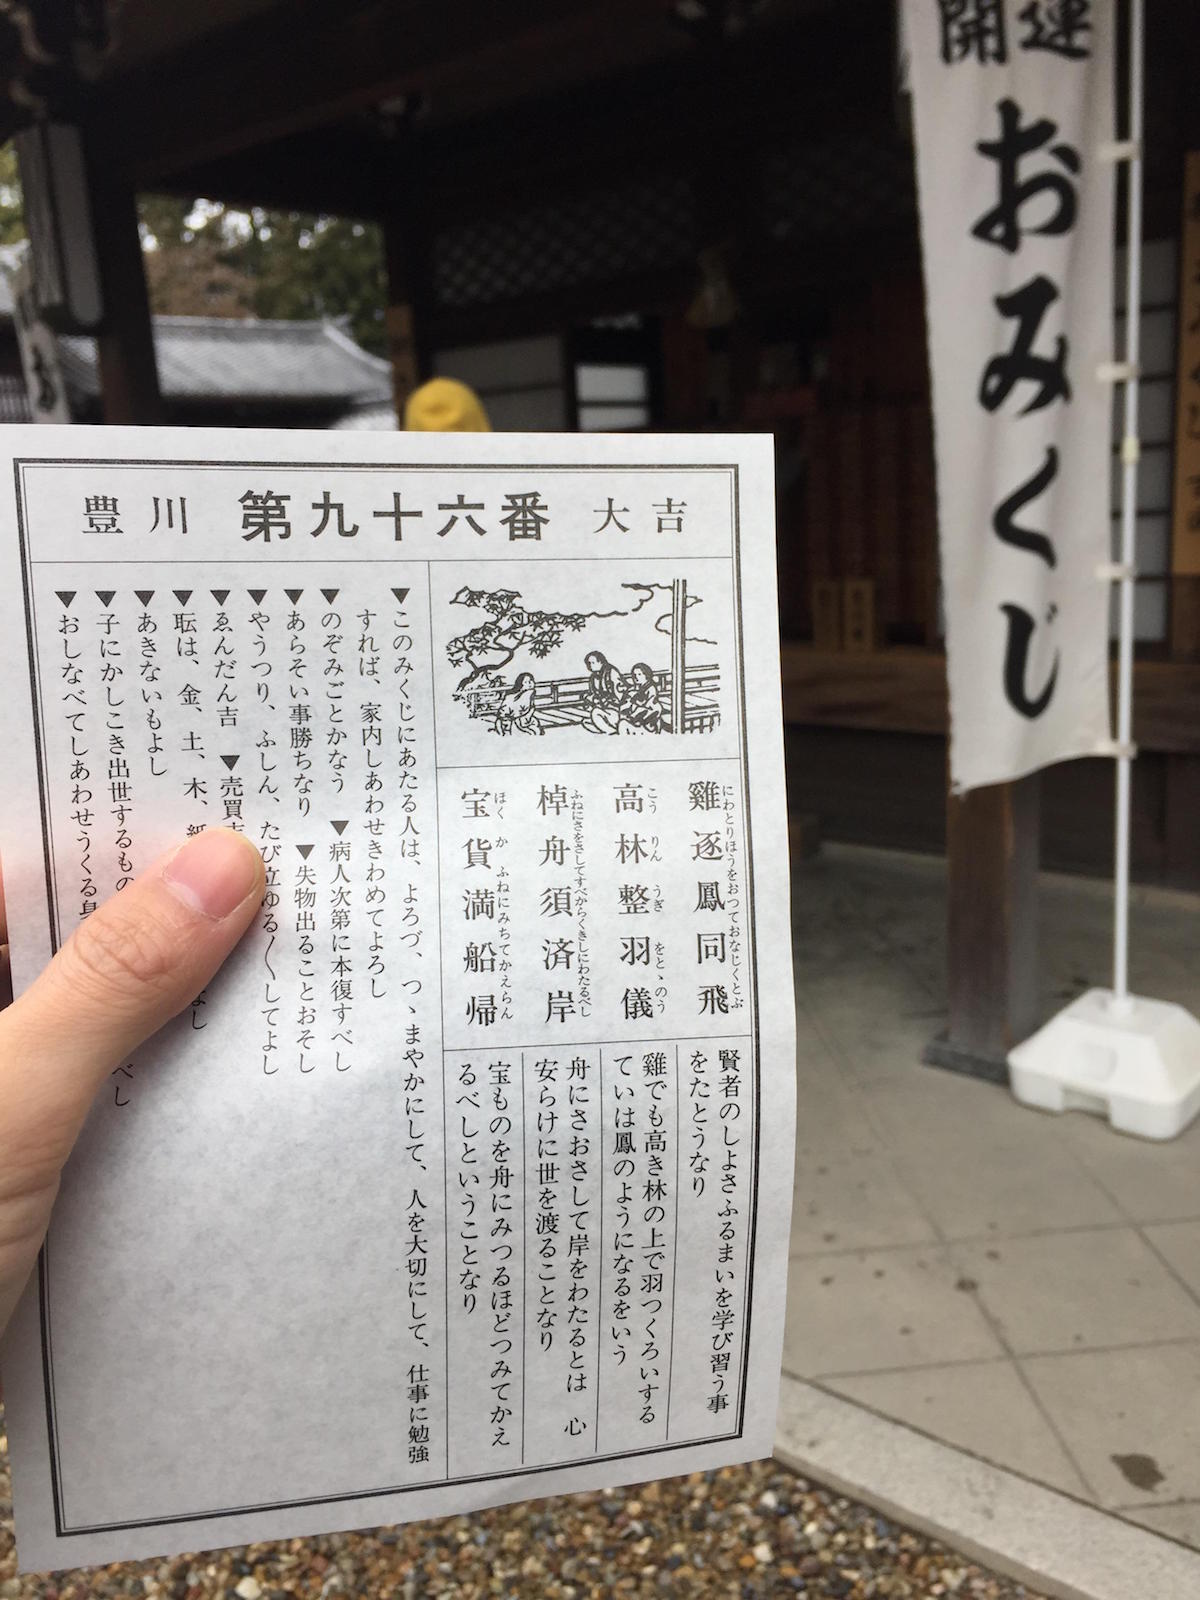 開運
おみくじ
豊川 第九十六番 大吉
雞逐鳳同飛
にわとりほうをおつておなじくとぶ
高林整羽儀
こうりんうぎをとゝのう
棹舟須済岸
ふねにさをさしてすべからくきしにわたるべし
宝貨満船帰
ほくかふねにみちてかえらん
賢者のしよさふるまいを学び習う事
をたとうなり
雞でも高き林の上で羽つくろいする
ていは鳳のようになるをいう
舟にさおさして岸をわたるとは 心
安らけに世を渡ることなり
宝ものを舟にみつるほどつみてかえ
るべしということなり
▼このみくじにあたる人は、よろづ、つゝまやかにして、人を大切にして、仕事に勉強
すれば、家内しあわせきわめてよろし
▼のぞみごとかなう ▼病人次第に本復すべし
▼あらそい事勝ちなり ▼失物出ることおそし
▼やうつり、ふしん、たび立ゆる〱してよし
▼ゑんだん吉 ▼売買
▼耺は、金、土、木、紙 なし
▼あきないもよし
▼子にかしこき出世するもの べし
▼おしなべてしあわせうくる身